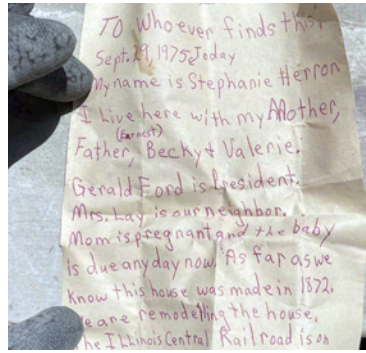 To Whoever finds this,
Sept. 29, 1975 Today
My name is Stephanie Herron
I Live here with my Mother,
(Earnest)
Father, Becky & Valerie.
Gerald Ford is President.
Mrs. Lay is our neighbor.
Mom is pregnant and the baby
is due any day now. As far as we
know this house was made in 1872.
We are remodelling the house.
The Illinois Central Railroad is on